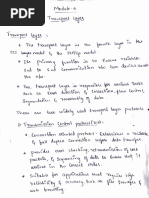 Module-4
Transport Layer
Transport Layer :
• The Transport Layer is the fourth layer in the
OSI layer model of the
• Its primary function is to Ensure reliable
end to end communication b/w two devices across
the
• The Transport Layer is responsible for various tasks
such as error detection & correction, flow control,
Segmentation & reassembly of data.
There are two widely used transport layer protocols
1) Transmission Control protocol :
• Connection oriented protocol
provides error checking, retransmission of lost
packets, & sequencing of data to ensure that it
arrives in the correct
• Suitable for applications that require high
reliability & accuracy such as file transfer &
web browsing